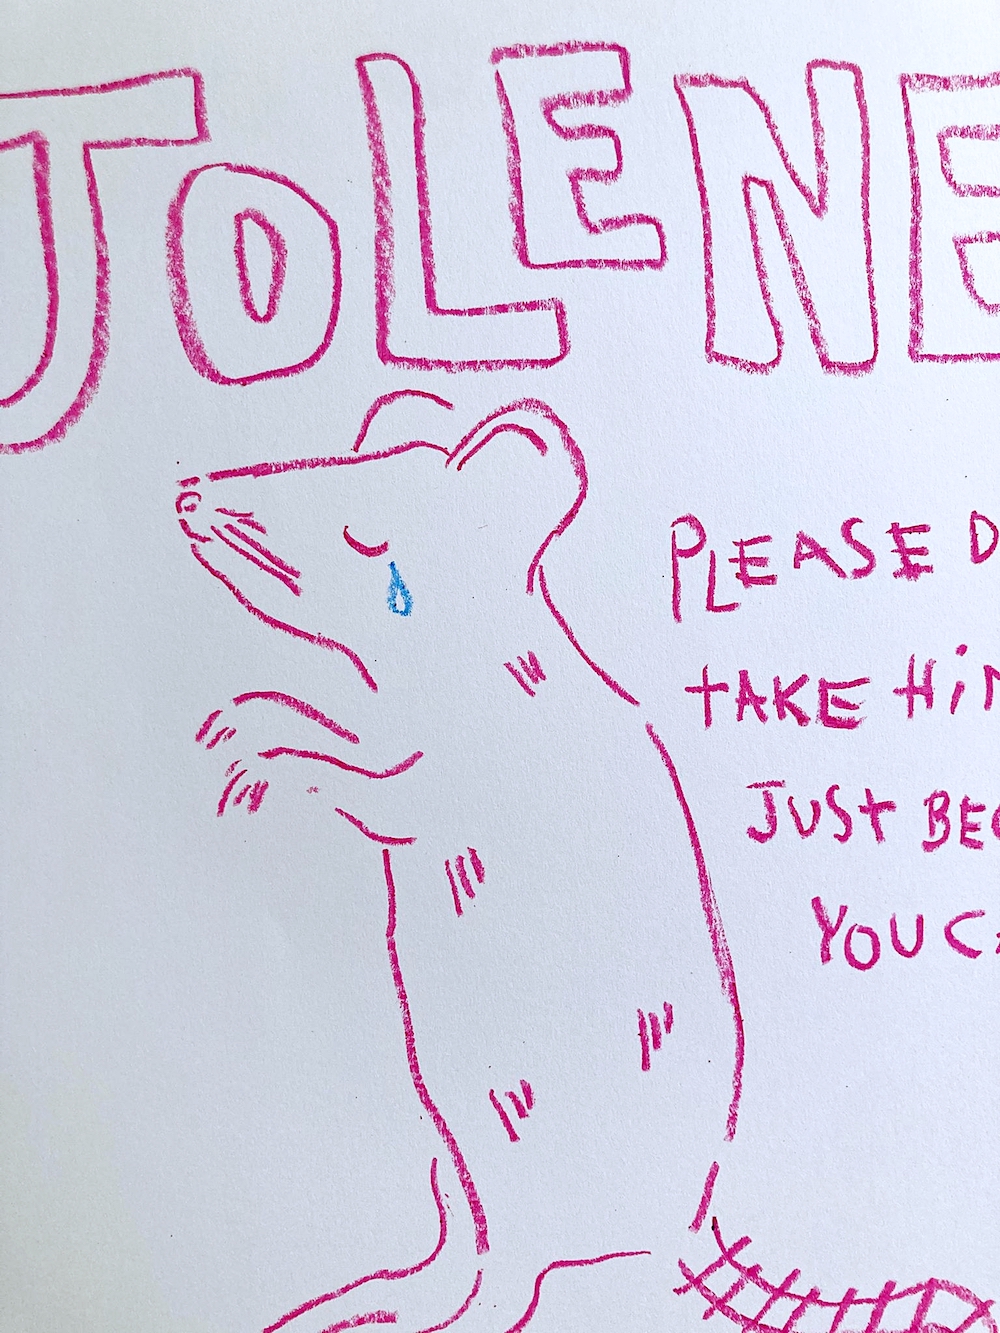 JOLENE
PLEASE D
TAKE HIM
JUST BEC
YOU CA